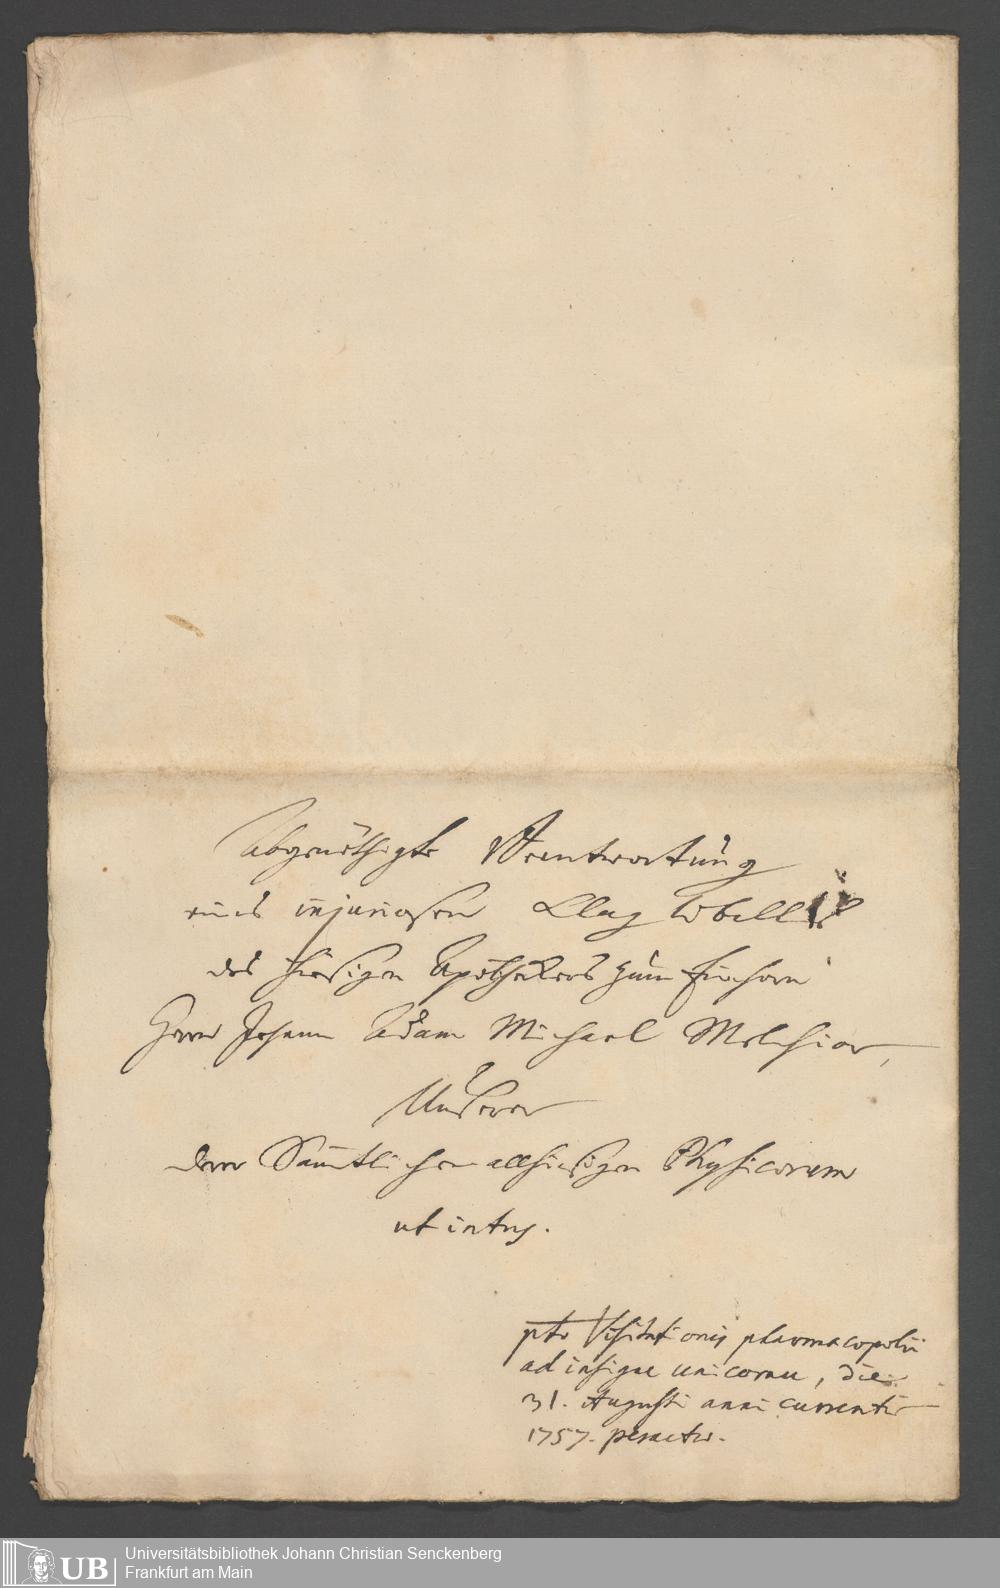 Abgenöthigte Verantwortung
eines injuriosen Klag Libells
des hiesigen Apothekers zum Einhorn
Herrn Johann Adam Michael Melchior,
Unserer
derer Sämtlichen allhiesigen Physicorum
ut intus.
pto Visitationis pharmacopolii
ad insigne unicornu, die
31. Augusti anni currentis
1757. peractae.
UB
Universitätsbibliothek Johann Christian Senckenberg
Frankfurt am Main